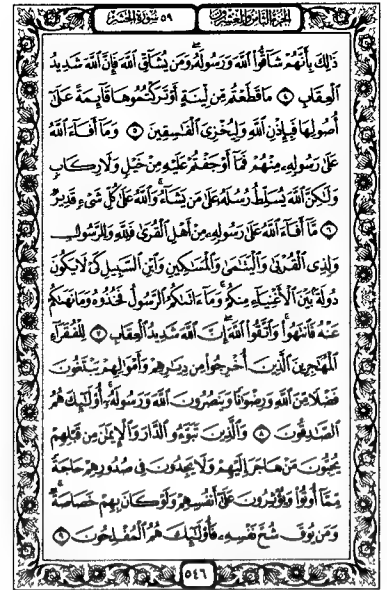 الجزء الثامن والعشرون ٥٩ سورة الحشر
ذَٰلِكَ بِأَنَّهُمْ شَاقُّوا۟ ٱللَّهَ وَرَسُولَهُۥ ۖ وَمَن يُشَآقِّ ٱللَّهَ فَإِنَّ ٱللَّهَ شَدِيدُ
ٱلْعِقَابِ ٤ مَا قَطَعْتُم مِّن لِّينَةٍ أَوْ تَرَكْتُمُوهَا قَآئِمَةً عَلَىٰٓ
أُصُولِهَا فَبِإِذْنِ ٱللَّهِ وَلِيُخْزِىَ ٱلْفَٰسِقِينَ ٥ وَمَآ أَفَآءَ ٱللَّهُ
عَلَىٰ رَسُولِهِۦ مِنْهُمْ فَمَآ أَوْجَفْتُمْ عَلَيْهِ مِنْ خَيْلٍ وَلَا رِكَابٍ
وَلَٰكِنَّ ٱللَّهَ يُسَلِّطُ رُسُلَهُۥ عَلَىٰ مَن يَشَآءُ ۚ وَٱللَّهُ عَلَىٰ كُلِّ شَىْءٍ قَدِيرٌ
٦ مَّآ أَفَآءَ ٱللَّهُ عَلَىٰ رَسُولِهِۦ مِنْ أَهْلِ ٱلْقُرَىٰ فَلِلَّهِ وَلِلرَّسُولِ
وَلِذِى ٱلْقُرْبَىٰ وَٱلْيَتَٰمَىٰ وَٱلْمَسَٰكِينِ وَٱبْنِ ٱلسَّبِيلِ كَىْ لَا يَكُونَ
دُولَةًۢ بَيْنَ ٱلْأَغْنِيَآءِ مِنكُمْ ۚ وَمَآ ءَاتَىٰكُمُ ٱلرَّسُولُ فَخُذُوهُ وَمَا نَهَىٰكُمْ
عَنْهُ فَٱنتَهُوا۟ ۚ وَٱتَّقُوا۟ ٱللَّهَ ۖ إِنَّ ٱللَّهَ شَدِيدُ ٱلْعِقَابِ ٧ لِلْفُقَرَآءِ
ٱلْمُهَٰجِرِينَ ٱلَّذِينَ أُخْرِجُوا۟ مِن دِيَٰرِهِمْ وَأَمْوَٰلِهِمْ يَبْتَغُونَ
فَضْلًا مِّنَ ٱللَّهِ وَرِضْوَٰنًا وَيَنصُرُونَ ٱللَّهَ وَرَسُولَهُۥٓ ۚ أُو۟لَٰٓئِكَ هُمُ
ٱلصَّٰدِقُونَ ٨ وَٱلَّذِينَ تَبَوَّءُو ٱلدَّارَ وَٱلْإِيمَٰنَ مِن قَبْلِهِمْ
يُحِبُّونَ مَنْ هَاجَرَ إِلَيْهِمْ وَلَا يَجِدُونَ فِى صُدُورِهِمْ حَاجَةً
مِّمَّآ أُوتُوا۟ وَيُؤْثِرُونَ عَلَىٰٓ أَنفُسِهِمْ وَلَوْ كَانَ بِهِمْ خَصَاصَةٌ ۚ
وَمَن يُوقَ شُحَّ نَفْسِهِۦ فَأُو۟لَٰٓئِكَ هُمُ ٱلْمُفْلِحُونَ ٩
٥٤٦